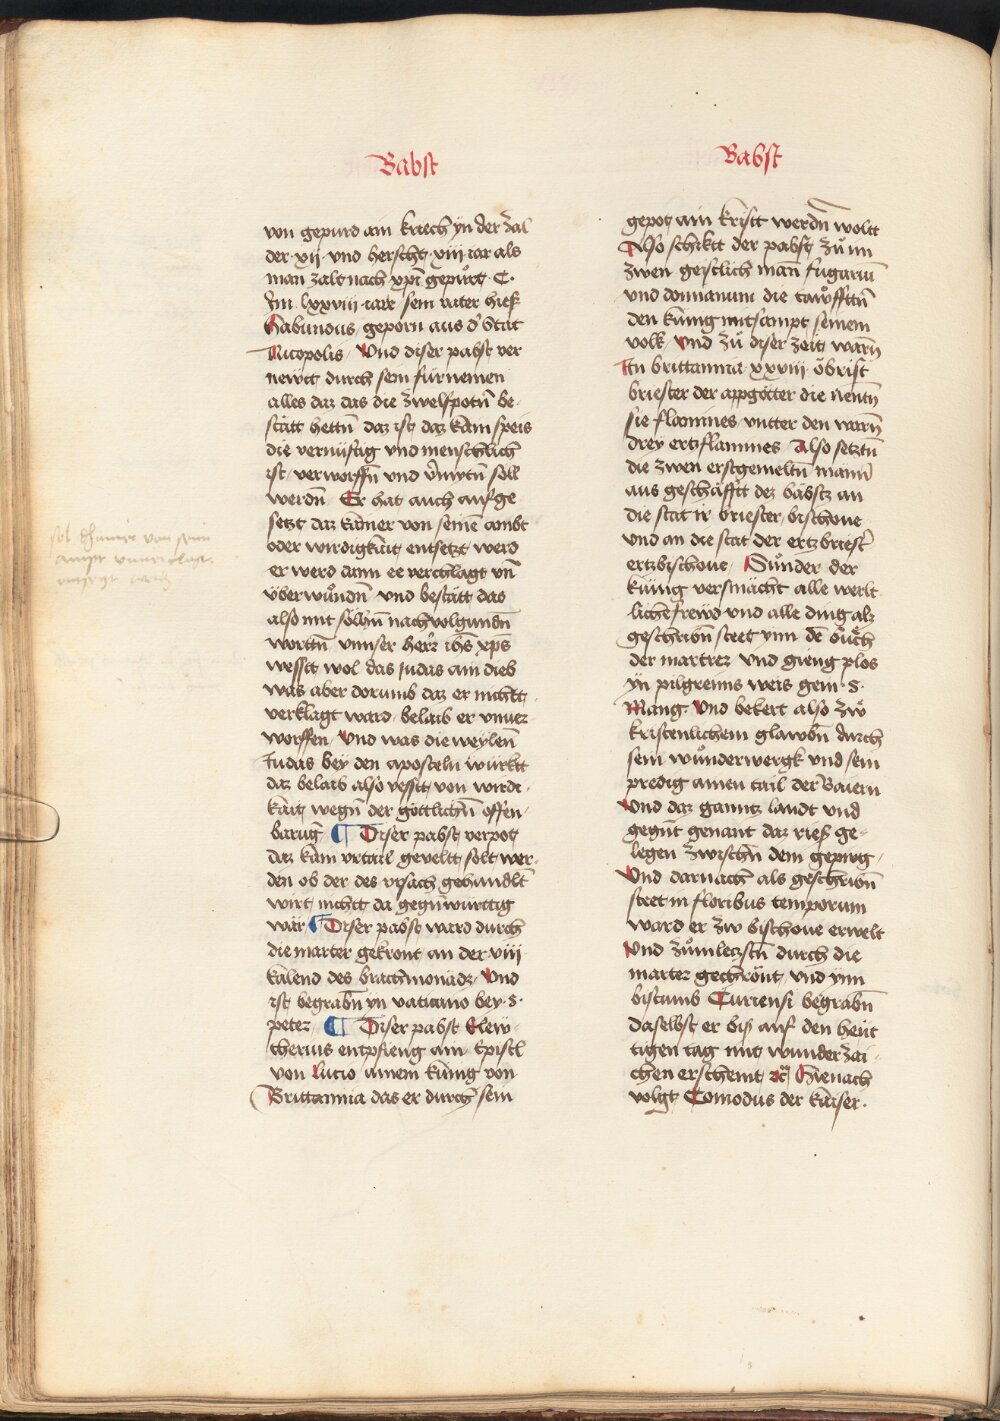 Babst
von gepurd ain kriech yn der zal
der xij vnd herscht xiij iar als
man zalt nach xpi gepůrt C.
Jm lxxviij iare sein vater hieß
Habundus geporn aus d' Stat
Nicopolis / Vnd diser pabst ver
newit durch sein fürnemen
alles daz das die zwelfpotn̄ be-
stätt hettn̄ daz ist daz kain speis
die vernüftig vnd menschlich
ist verworffn̄ vnd v'mytn̄ soll
werdn̄ Er hat auch aufge
setzt daz kainer von seinē ambt
oder wirdigkait entsetzt werd
er werd dann ee verchlagt vn̄
vͤberwůndn̄ vnd bestätt das
also mit sölhn̄ nachvolgundn̄
worttn̄ vnnser herr ihs xps
wesst wol das Judas ain dieb
was aber dorumb daz er nichtt
verklagt ward / belaib er vnuer-
worffen / Vnd was die weylen̄
Judas bey den aposteln würkt
daz belaib also vesst von wirdi-
kait wegn̄ der göttlichn̄ offen-
barūg ¶ Diser pabst verpot
daz kain vrtail geveltt solt wer-
den ob der des vrsach gehandlt
wirt nichtt da gegn̄württig
wär ¶ Diser pabst ward durch
die marter gekrönt an der viij
kalend des brachmonadz / Vnd
ist begrabn̄ yn vaticano bey .s.
peter ¶ Diser pabst Elew-
therius entpfieng ain Epistl
von Lucio ainem künig von
Brittannia das er durch sein
Babst
gepot ain kristt werdn̄ woltt
Also schiktt der pabst zů im
zwen geistlich man̄ fugaciū
vnd domianum die tawffttn̄
den künig mitsampt seinem
volk / vnd zů diser zeit warn̄
Jn brittannia xxviij öbrist
briester der appgötter die nentn̄
sie flamines vntter den warn̄
drey ertzflamines Also setztn̄
die zwen erstgemeltn̄ mann̄
aus geschäfftt dez babstz an
die stat ir briester / bischoue
vnd an die stat der ertzbriest'
ertzbischoue / Sunder der
küng versmächt alle werlt-
lichen frewd vnd alle ding alz
geschribn̄ steet ynn dē bůch
der martrer vnd gieng plos
yn pilgreims weis gein .S.
Mang. Vnd bekert also zw
kristenlichem glawbn̄ durch
sein wůnderwergk vnd sein
predig ainen tail der Baiern
Vnd daz ganntz landt vnd
gegn̄t genant daz rieß ge-
legen zwischn̄ dem gepirg /
Vnd darnach als geschribn̄
steet in floribus temporum
ward er zw bischoue erwelt
Vnd zůmletzstn̄ durch die
marter gechrönt vnd ynn
bistumb Curiensi begrabn̄
daselbst er bis auf den heüt
tigen tag mit wunderzai-
chen erscheint ꝛc̄ Hienach
volgt Comodus der kaiser.